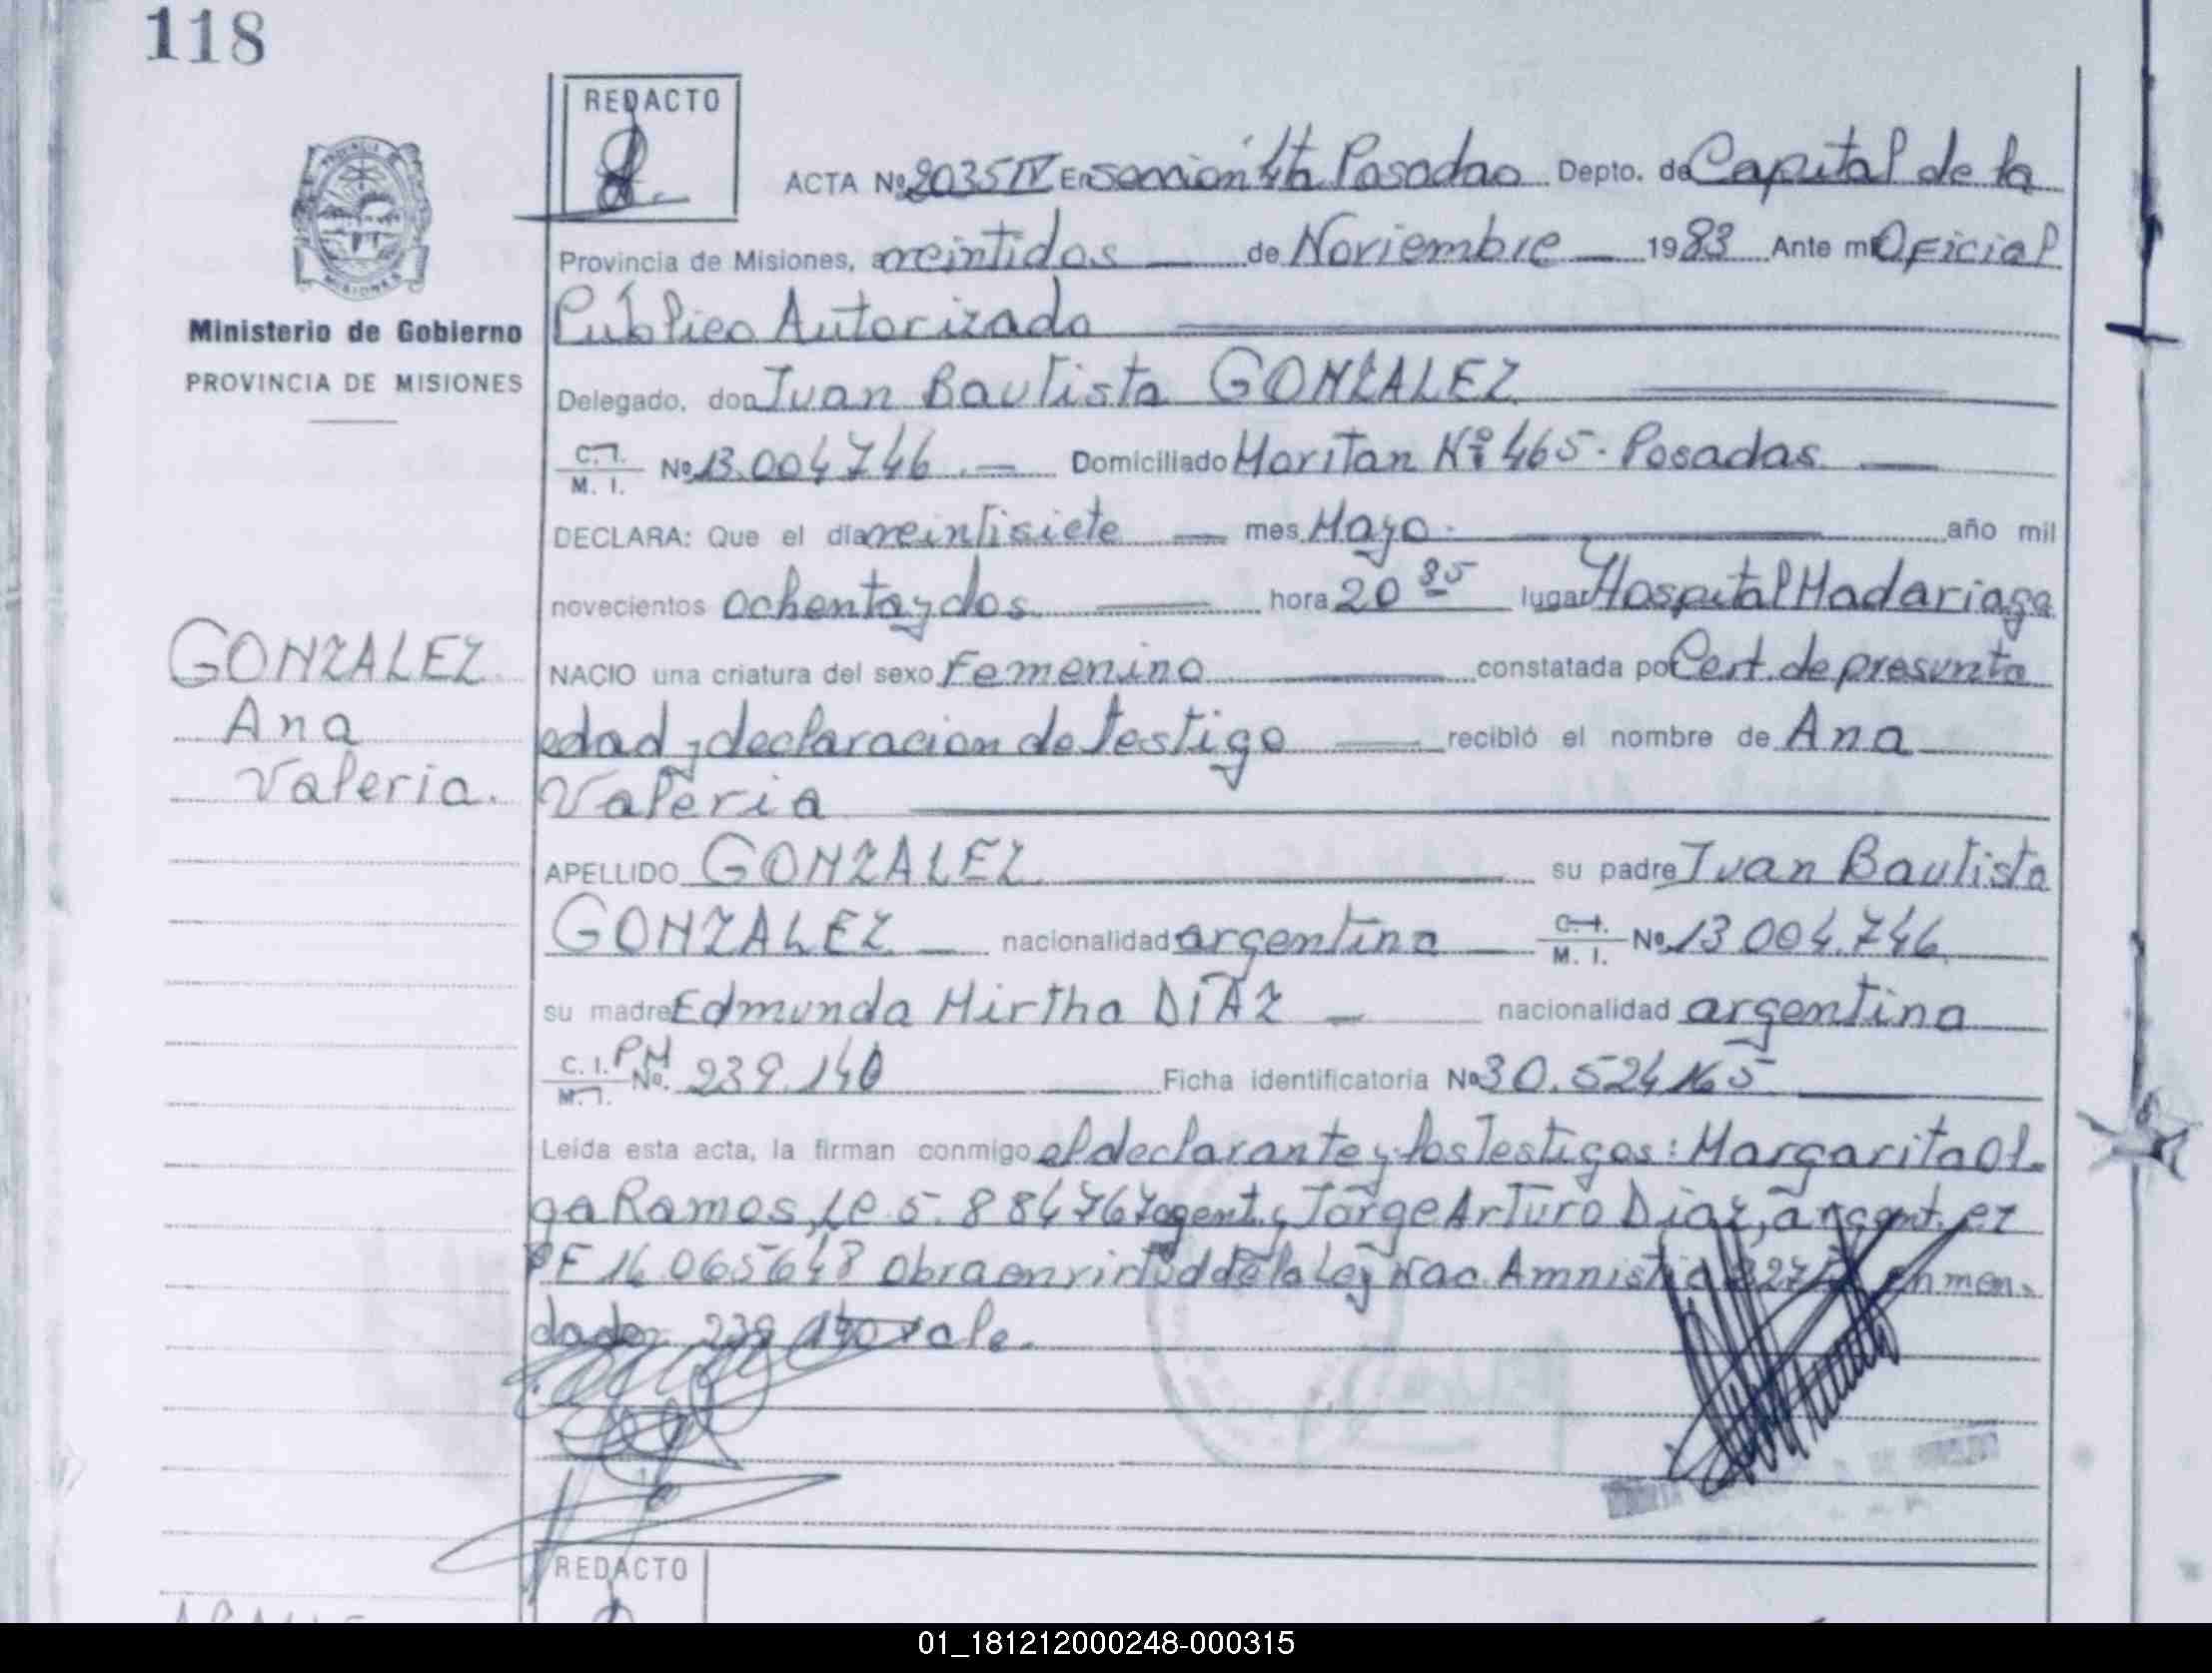 118
REDACTO
ACTA Nº 2035 IV En sección 4ta Posadas Depto. de Capital de la
Provincia de Misiones, a veintidos de Noviembre 1983 Ante mi Oficial
Público Autorizado
Ministerio de Gobierno
PROVINCIA DE MISIONES
Delegado, don Juan Bautista GONZALEZ
C.I. M. I. Nº 13.004.746 Domiciliado Moritan Nº 465. Posadas
DECLARA: Que el día veintisiete mes Mayo. año mil
novecientos ochenta y dos hora 20 35 lugar Hospital Madariaga
GONZALEZ
Ana
Valeria.
NACIO una criatura del sexo Femenino constatada por Cert. de presunta
edad y declaracion de testigo recibió el nombre de Ana
Valeria
APELLIDO GONZALEZ su padre Juan Bautista
GONZALEZ nacionalidad argentina C.I. M. I. Nº 13.004.746
su madre Edmunda Mirtha DIAZ nacionalidad argentina
C. I. PM M.I. Nº. 239.140 Ficha identificatoria Nº 30.524.165
Leída esta acta, la firman conmigo el declarante y los testigos: Margarita Ol-
ga Ramos, LC. 5.884767 agent. y Jorge Arturo Diaz, argent.
16.065648 Obra en virtud de la Ley Nac. Amnistia enmen-
dado: 239.140 vale.
REDACTO
01_181212000248-000315